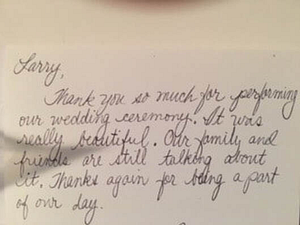 Larry,
Thank you so much for performing
our wedding ceremony. It was
really beautiful. Our family and
friends are still talking about
it. Thanks again for being a part
of our day.